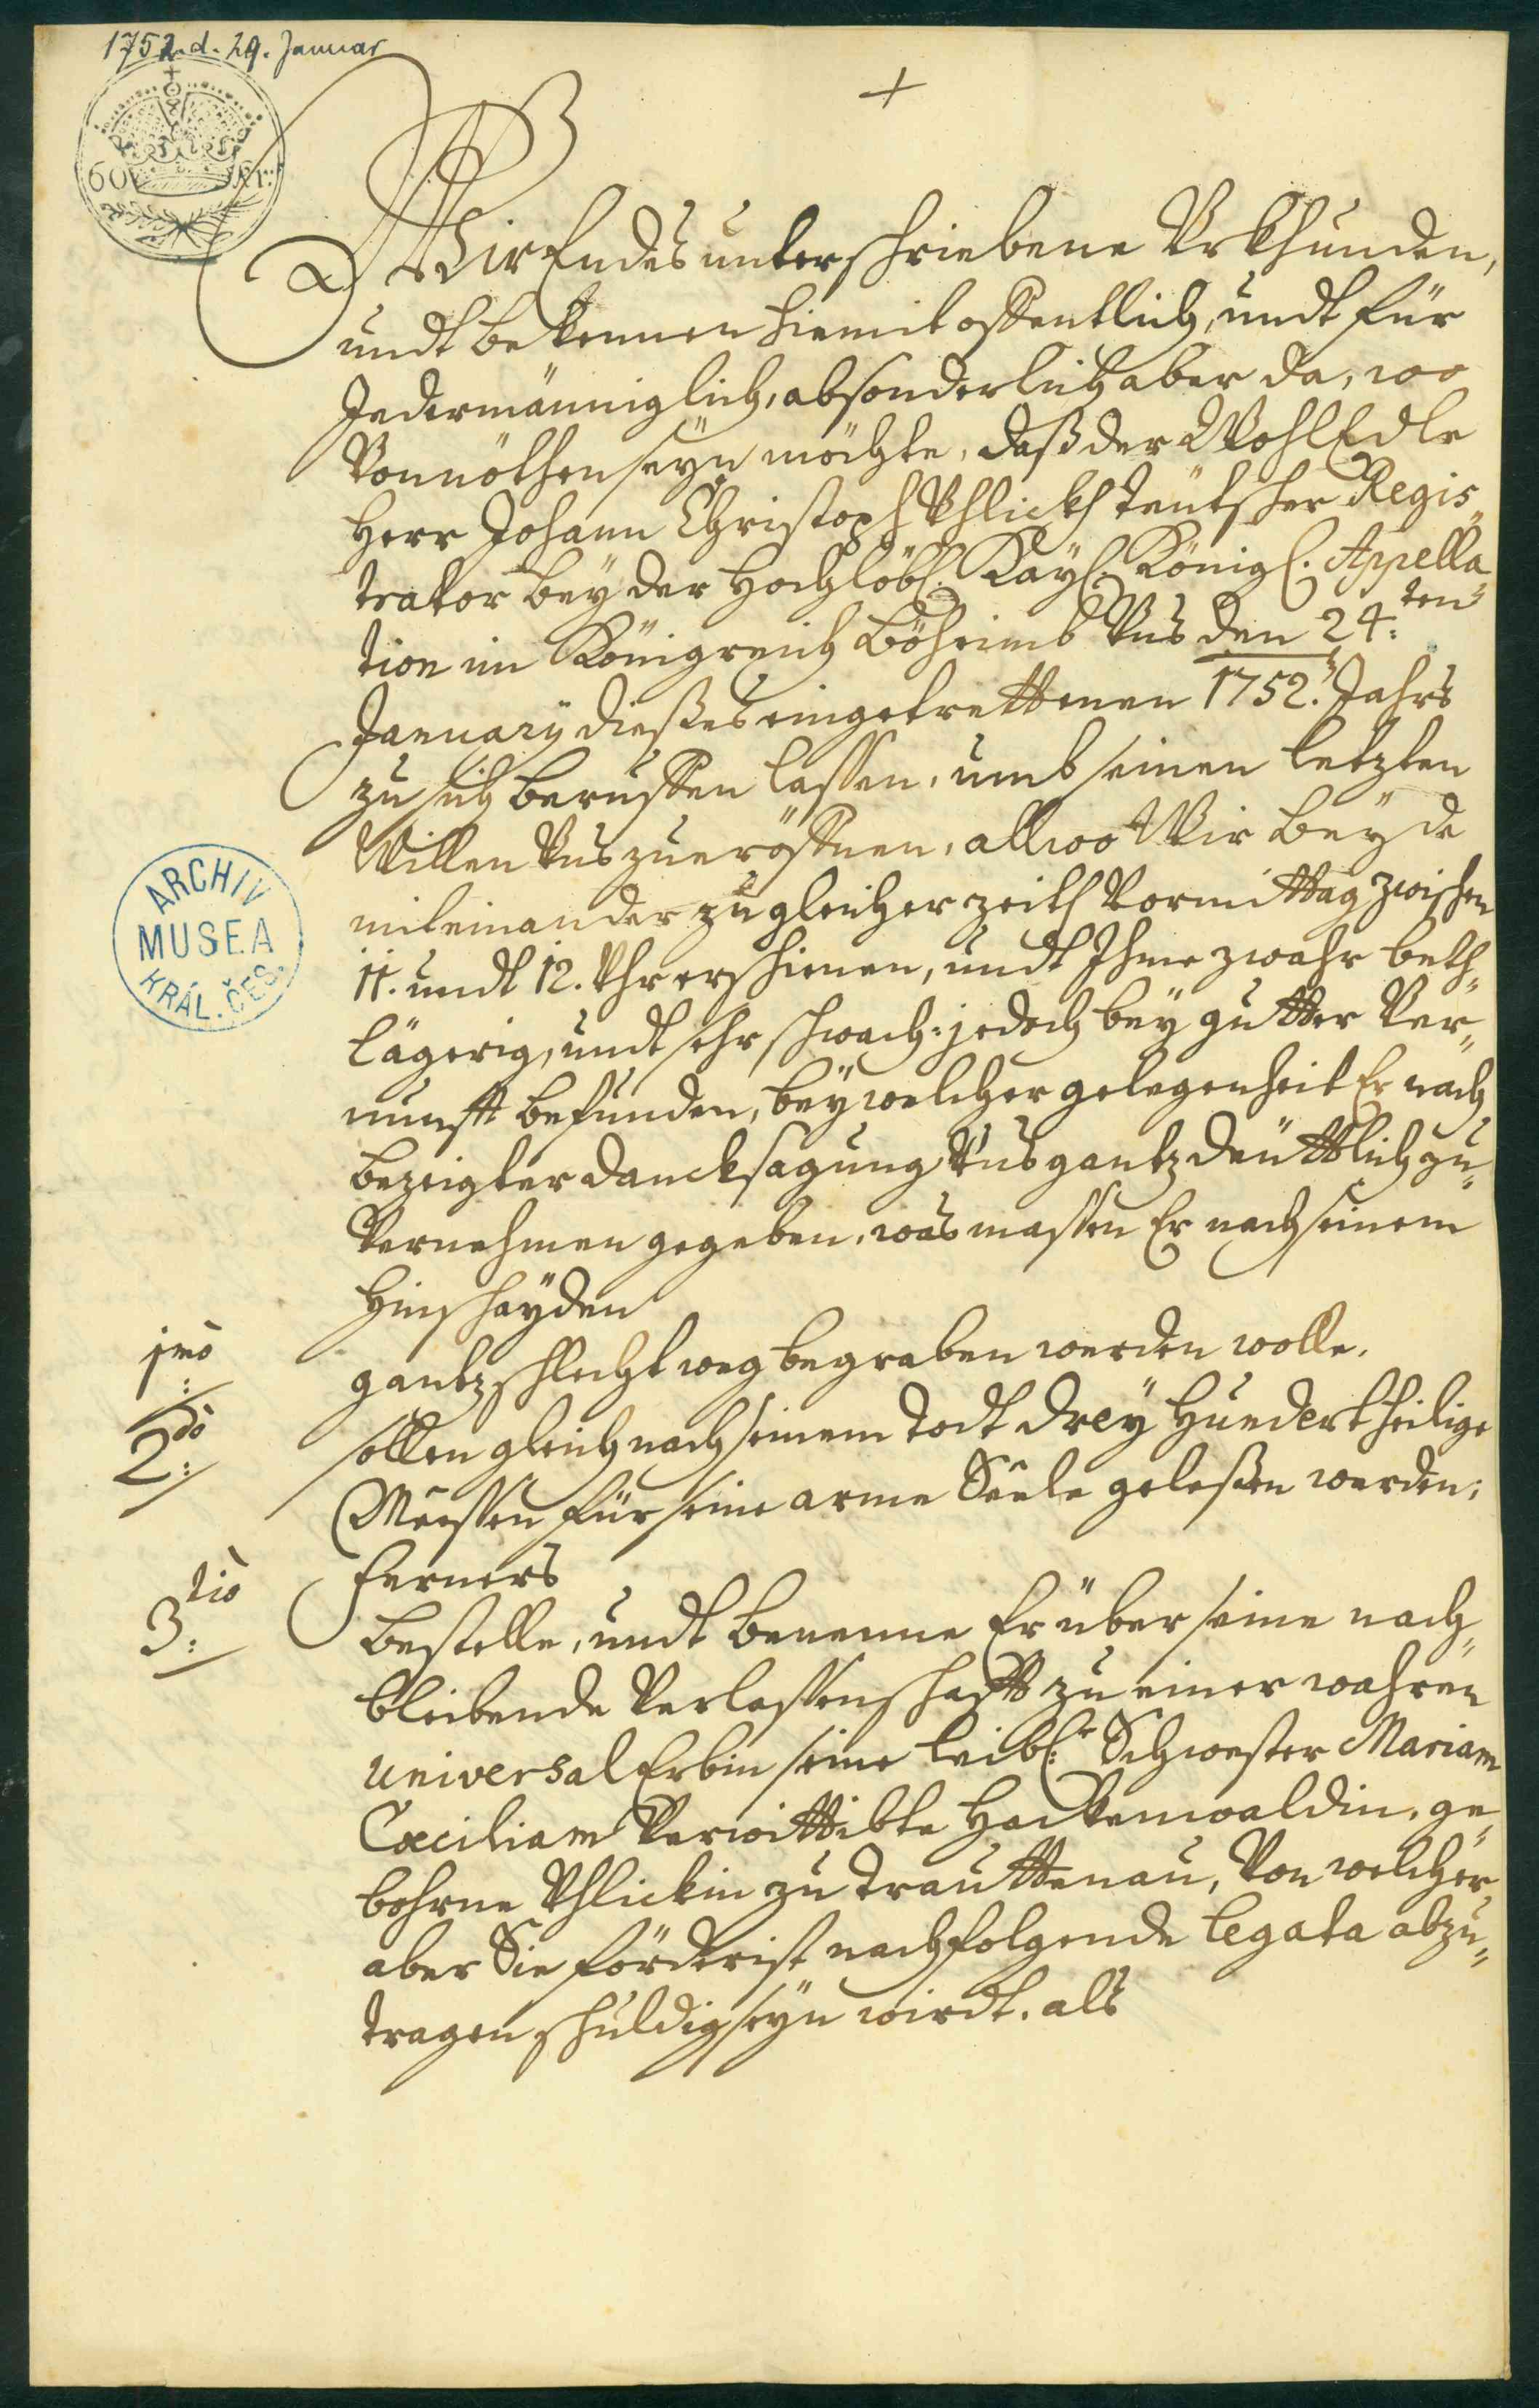 1752. d. 29. Januar
+
60 Kr:
Wir Endes unterschriebene Urkhunden,
undt bekennen hiemit offentlich, undt für
Jedermänniglich, absonderlich aber da, wo
Vonnöthen seyn möchte, daß der WohlEdle
Herr Johann Christoph Uhlickh teütscher Regis„
trator bey der Hochlöbl. Kayl. Königl. Appella„
tion im Königreich Böheimb Uns den 24:ten
January dießes eingetrettenen 1752.ten Jahrs
zu sich beruffen lassen, umb seinen letzten
Willen Uns zueröffnen, allwo Wir beyde
miteinander zu gleicher zeith Vormittag zwischen
11. undt 12. Uhr erschienen, undt Ihme zwahr beth„
lägerig, undt sehr schwach: jedoch bey gutter Ver„
nunfft befunden, bey welcher gelegenheit Er nach
bezeigter dancksagung Uns gantz deüttlich zu„
Vernehmen gegeben, was massen Er nach seinem
Hinschayden
1mò gantz schlecht weg begraben werden wolle.
2:dò sollen gleich nach seinem todt drey Hundert heilige
Meessen für seine arme Seele geleßen werden;
Ferners
3:tiò bestelle, undt benenne Er über seine nach„
bleibende Verlassenschafft zu einer wahren
Universal Erbin seine leibl:e Schwester Mariam
Cæciliam Verwittibte Hackenwaldin, ge„
bohrne Uhlickin zu Trauttenau, Von welcher
aber Sie förderist nachfolgende Legata abzu„
tragen schuldig seyn wirdt. als
ARCHIV
MUSEA
KRÁL. ČES.